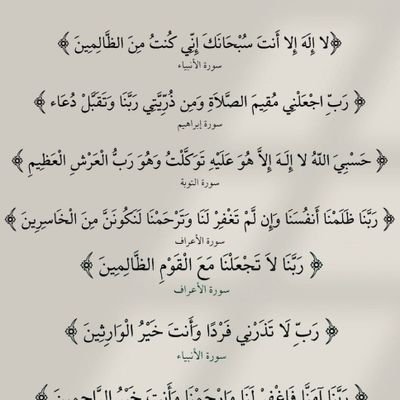 ﴿لا إِلَهَ إِلا أَنتَ سُبْحَانَكَ إِنِّي كُنتُ مِنَ الظَّالِمِينَ﴾
سورة الأنبياء
﴿رَبِّ اجْعَلْنِي مُقِيمَ الصَّلاَةِ وَمِن ذُرِّيَّتِي رَبَّنَا وَتَقَبَّلْ دُعَاء﴾
سورة إبراهيم
﴿حَسْبِيَ اللّهُ لا إِلَهَ إِلاَّ هُوَ عَلَيْهِ تَوَكَّلْتُ وَهُوَ رَبُّ الْعَرْشِ الْعَظِيمِ﴾
سورة التوبة
﴿رَبَّنَا ظَلَمْنَا أَنفُسَنَا وَإِن لَّمْ تَغْفِرْ لَنَا وَتَرْحَمْنَا لَنَكُونَنَّ مِنَ الْخَاسِرِينَ﴾
سورة الأعراف
﴿رَبَّنَا لاَ تَجْعَلْنَا مَعَ الْقَوْمِ الظَّالِمِينَ﴾
سورة الأعراف
﴿رَبِّ لَا تَذَرْنِي فَرْدًا وَأَنتَ خَيْرُ الْوَارِثِينَ﴾
سورة الأنبياء
﴿رَبَّنَا آمَنَّا فَاغْفِرْ لَنَا وَارْحَمْنَا وَأَنتَ خَيْرُ الرَّاحِمِينَ﴾